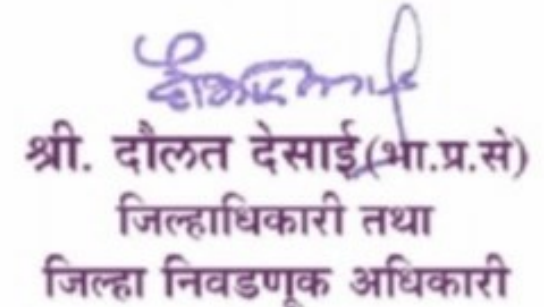 श्री. दौलत देसाई(भा.प्र.से)
जिल्हाधिकारी तथा
जिल्हा निवडणूक अधिकारी